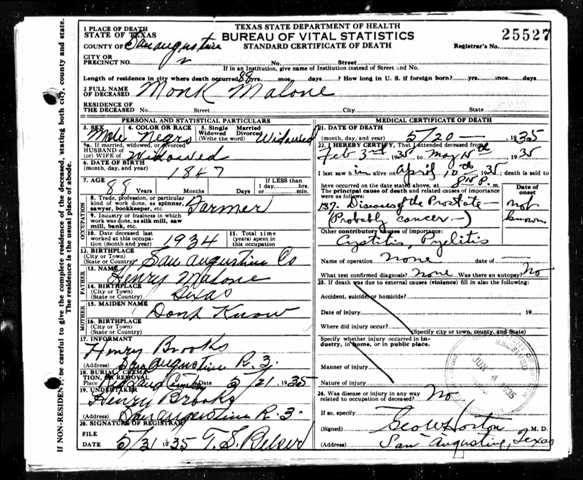 TEXAS STATE DEPARTMENT OF HEALTH
BUREAU OF VITAL STATISTICS
STANDARD CERTIFICATE OF DEATH
25527
1 PLACE OF DEATH
STATE OF TEXAS
COUNTY OF San Augustine
CITY OR
PRECINCT No. Street
Registrar's No.
If in an Institution, give name of Institution instead of Street and No.
Length of residence in city where death occurred 88 yrs. mos. days ? How long in U. S. if foreign born? yrs. mos. days
2 FULL NAME OF DECEASED Monk Malone
RESIDENCE OF THE DECEASED No. Street City State
PERSONAL AND STATISTICAL PARTICULARS
3. SEX 4. COLOR OR RACE 5. Single Married Widowed Divorced (Write the word)
Male Negro Widowed
5a. If married, widowed, or divorced
HUSBAND of
(or) WIFE of Widowed
6. DATE OF BIRTH
(month, day, and year) 1847
7. AGE 88 Years Months Days If LESS than 1 day, hrs. min.
OCCUPATION
8. Trade, profession, or particular kind of work done, as spinner, sawyer, bookkeeper, etc. Farmer
9. Industry or business in which work was done, as silk mill, saw mill, bank, etc.
10. Date deceased last worked at this occupation (month and year) 1934
11. Total time (years) spent in this occupation
12. BIRTHPLACE
(City or Town)
(State or Country) San Augustine Co
FATHER
13. NAME Henry Malone
14. BIRTHPLACE
(City or Town)
(State or Country) Texas
MOTHER
15. MAIDEN NAME Dont Know
16. BIRTHPLACE
(City or Town)
(State or Country)
17. INFORMANT Henry Brooks
(Address) San Augustine R. 3.
18. BURIAL, CREMATION, OR REMOVAL
Place Date 5/21 1935
19. UNDERTAKER Henry Brooks
(Address) San Augustine R-3-
20. SIGNATURE OF REGISTRAR
FILE DATE 5/31 1935
MEDICAL CERTIFICATE OF DEATH
21. DATE OF DEATH
(month, day, and year) 5/20 - 1935
22. I HEREBY CERTIFY, That I attended deceased from
Feb 3rd 1935 to May 15th 1935
I last saw him alive on April 10th 1935 death is said to
have occurred on the date stated above, at 8 P. m.
The principal cause of death and related causes of importance were as follows: Date of onset
137. Diseases of the Prostate - not
(Probably cancer -) known
Other contributory causes of importance:
Cystitis, Pyelitis
Name of operation None
What test confirmed diagnosis? None Was there an autopsy? No
23. If death was due to external causes (violence) fill in also the following:
Accident, suicide, or homicide?
Date of injury 19
Where did injury occur?
(Specify city or town, county, and State)
Specify whether injury occurred in industry, in home, or in public place.
Manner of injury
Nature of injury
24. Was disease or injury in any way related to occupation of deceased? No.
If so, specify
(Signed) Geo W Horton M. D.
(Address) San Augustine, Texas
JUN 4 1935